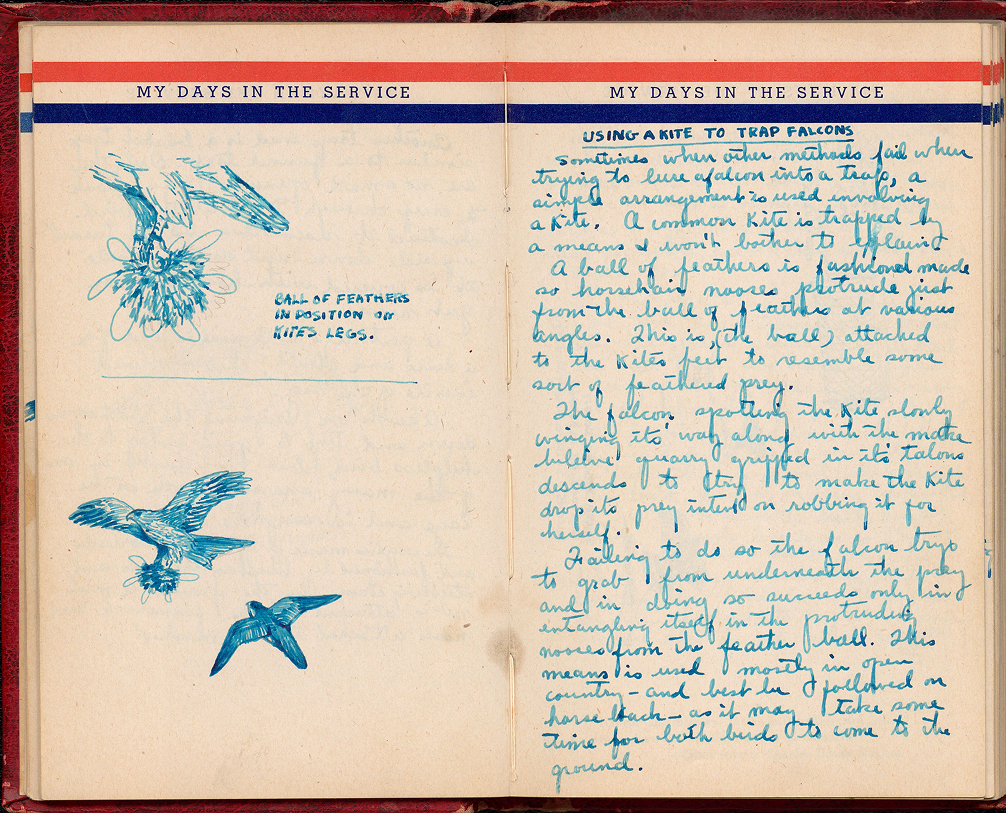 MY DAYS IN THE SERVICE
BALL OF FEATHERS
IN POSITION ON
KITES LEGS.
MY DAYS IN THE SERVICE
USING A KITE TO TRAP FALCONS
Sometimes when other methods fail when
trying to lure a falcon into a trap, a
simple arrangement is used involving
a Kite. A common Kite is trapped by
a means I won't bother to explain
A ball of feathers is fashioned made
so horsehair nooses protrude just
from the ball of feathers at various
angles. This is, (the ball) attached
to the Kites feet to resemble some
sort of feathered prey.
The falcon spotting the Kite slowly
winging its' way along with the make
beleive quarry gripped in its' talons
descends to try to make the Kite
drop its prey intent on robbing it for
herself.
Failing to do so the falcon trys
to grab from underneath the prey
and in doing so succeeds only in
entangling itself in the protruding
nooses from the feather ball. This
means is used mostly in open
country - and best be followed on
horse back - as it may take some
time for both birds to come to the
ground.